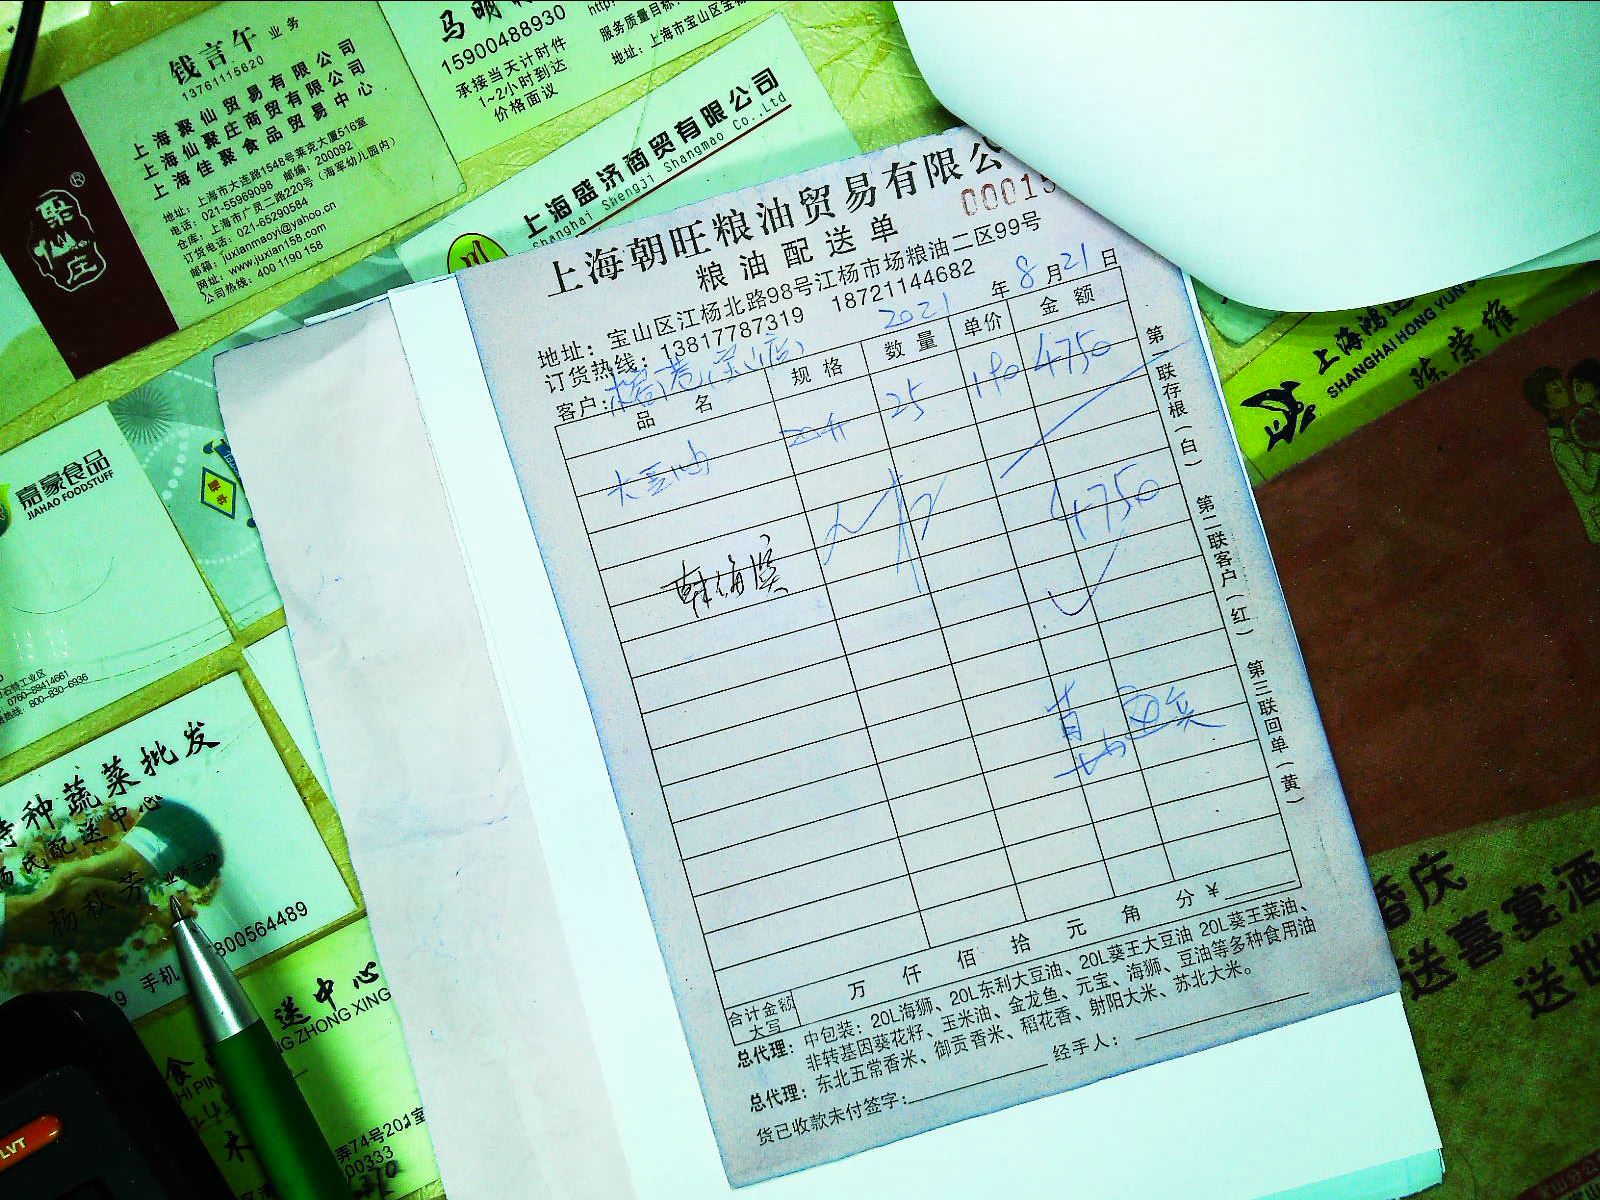 钱言午 业务
13761115620
上海聚仙贸易有限公司
上海仙聚庄商贸有限公司
上海佳聚食品贸易中心
地址：上海市大连路1548号莱克大厦516室
电话：021-55969098 邮编：200092
仓库：上海市广灵二路220号（海军幼儿园内）
订货电话：021-65290584
邮箱：juxianmaoyi@yahoo.cn
网址：www.juxian158.com
公司热线：400 1190 158
聚仙庄®
马明
15900488930
承接当天计时件
1~2小时到达
价格面议
http:
服务质量目标
地址：上海市宝山区宝
上海盛济商贸有限公司
Shanghai Shengji Shangmao Co.,Ltd
上海朝旺粮油贸易有限公
00015
粮油配送单
地址：宝山区江杨北路98号江杨市场粮油二区99号
订货热线：13817787319 18721144682
客户：
2021年8月21日
品名 规格 数量 单价 金额
大豆油 20升 25 190 4750
4750
韩海滨
第一联存根（白） 第二联客户（红） 第三联回单（黄）
合计金额大写 万 仟 佰 拾 元 角 分 ￥
总代理：中包装：20L海狮、20L东利大豆油、20L葵王大豆油 20L葵王菜油、
非转基因葵花籽、玉米油、金龙鱼、元宝、海狮、豆油等多种食用油
总代理：东北五常香米、御贡香米、稻花香、射阳大米、苏北大米。
货已收款未付签字： 经手人：
嘉豪食品
JIAHAO FOODSTUFF
石特工业区
0760-89414661
热线：800-830-6936
特种蔬菜批发
杨氏配送中心
杨秋芳
手机
800564489
送中心
NG ZHONG XING
弄74号202室
00333
LVT
上海鸿运
SHANGHAI HONG YUN
陈荣维
婚庆
送喜宴酒
送世